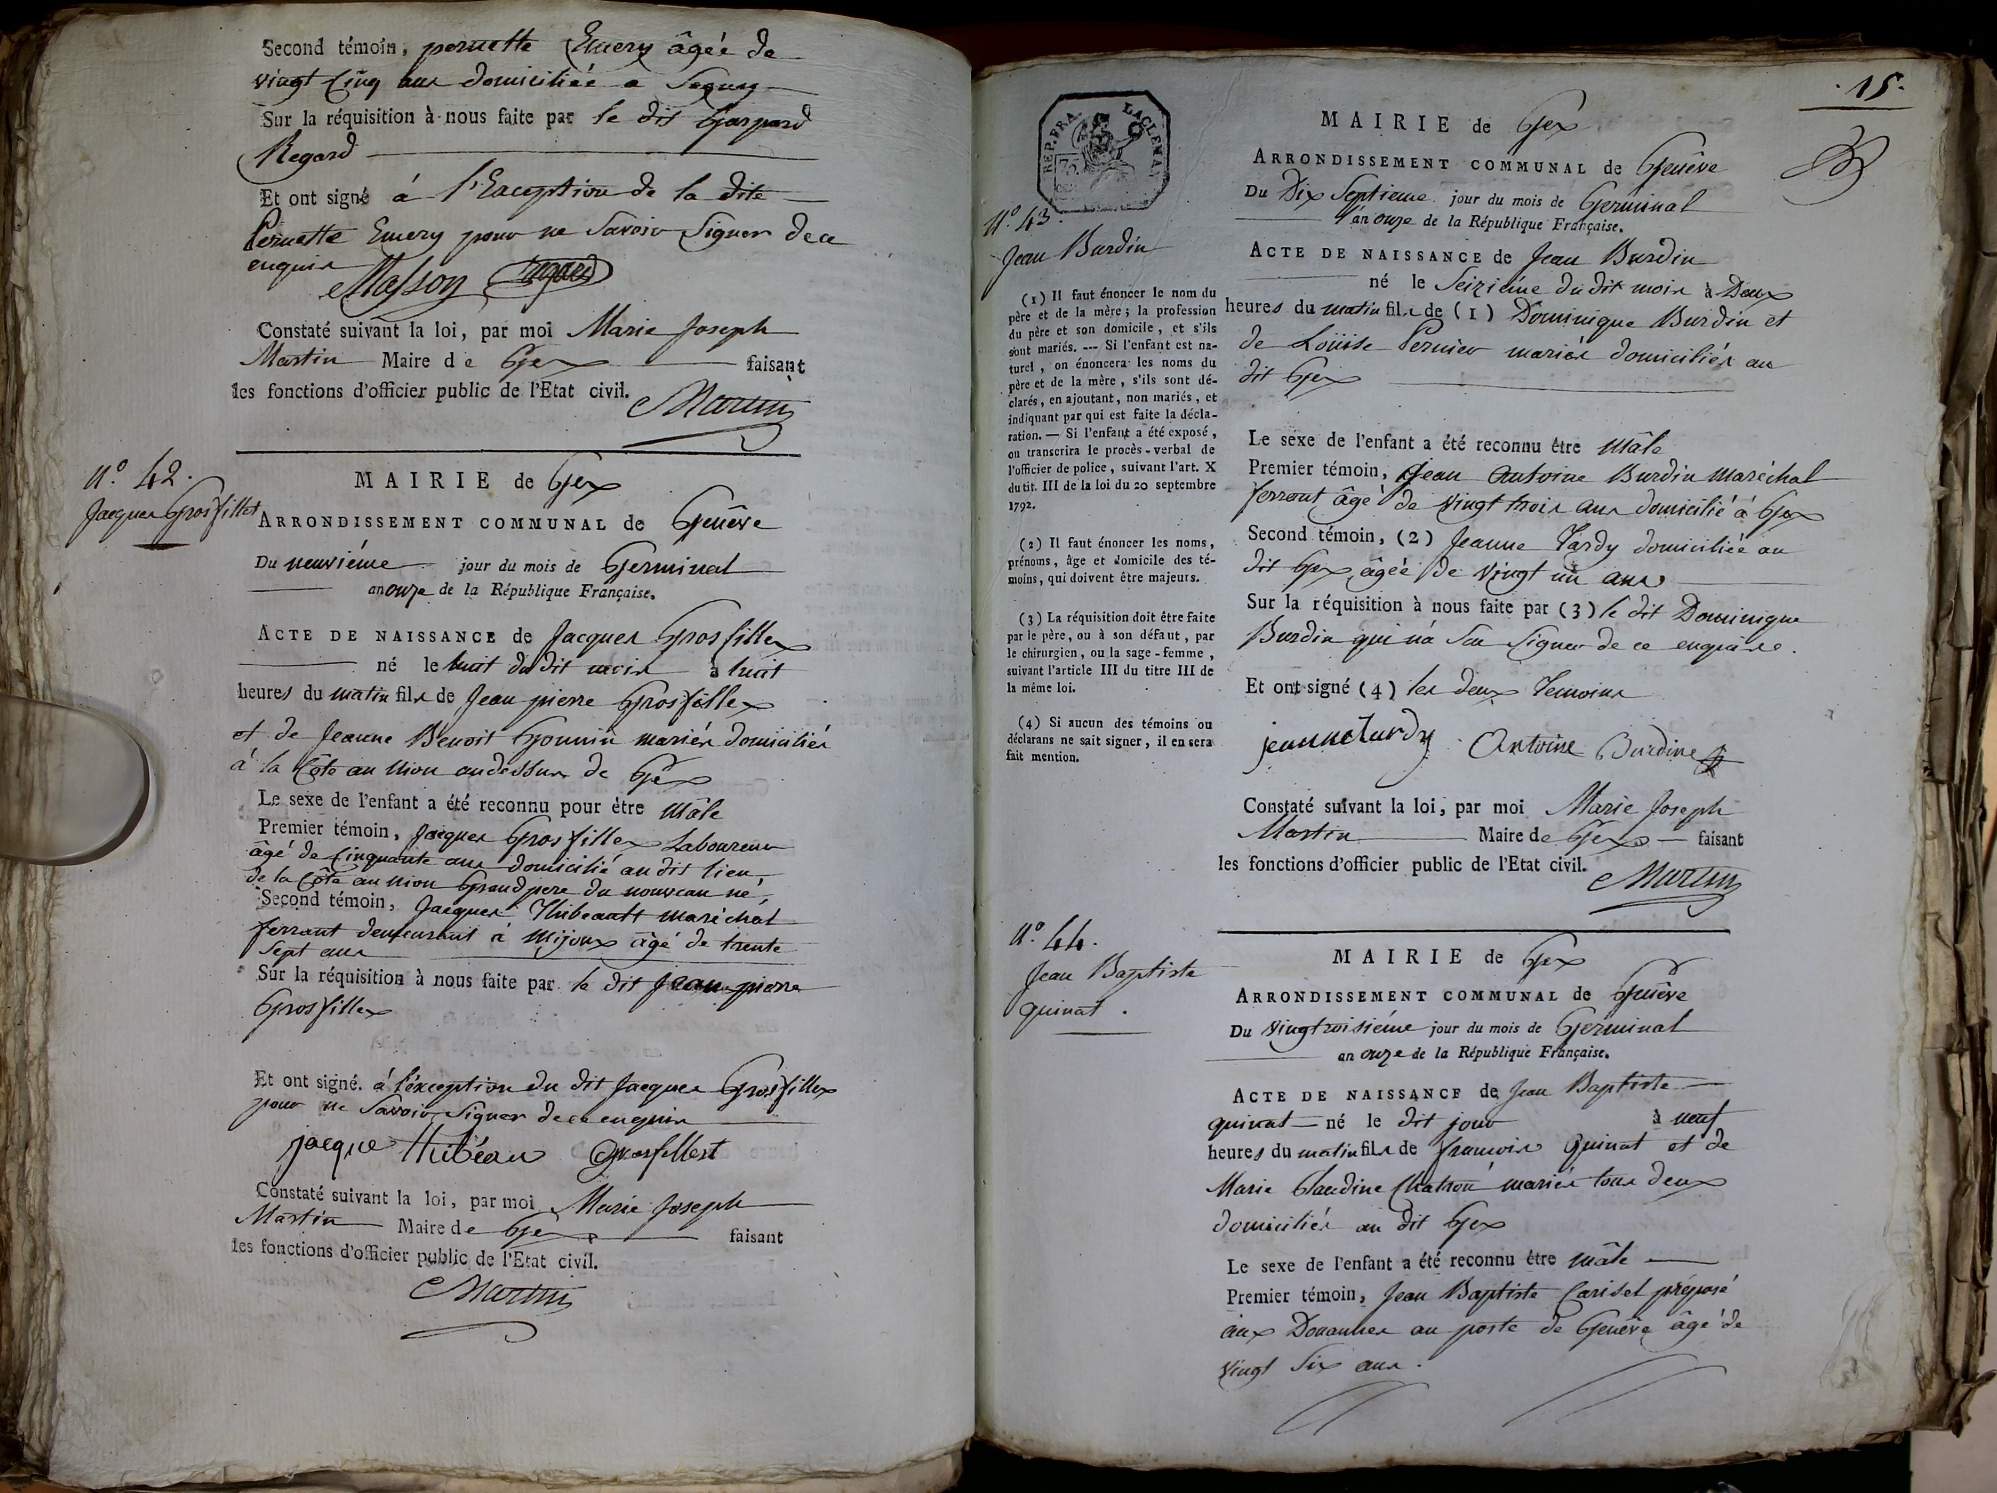 Second témoin, pernette Emery âgée de
vingt Cinq ans domiciliée a Segny
Sur la réquisition à nous faite par le dit Gaspard
Regard
Et ont signé à l'Exception de la dite
Pernette Emery pour ne Savoir Signer de ce
enquis
Masson Regard
Constaté suivant la loi, par moi Marie Joseph
Martin Maire de Gex faisant
les fonctions d'officier public de l'Etat civil.
Martin
N.° 42.
Jacques Grosfillet
MAIRIE de Gex
ARRONDISSEMENT COMMUNAL de Genêve
Du neuviéme jour du mois de Germinal
an onze de la République Française.
ACTE DE NAISSANCE de Jacques Grosfillex
né le huit du dit mois à huit
heures du matin fils de Jean pierre Grosfillex
et de Jeanne Benoit Gonnin mariés domiciliés
à la Côte au Nion au dessus de Gex
Le sexe de l'enfant a été reconnu pour être mâle
Premier témoin, Jacques Grosfillex Laboureur
âgé de Cinquante ans domicilié au dit lieu,
de la Côte au Nion Grand pere du nouveau né,
Second témoin, Jacques Thibeault maréchal
ferrant demeurant à Mijoux âgé de trente
Sept ans
Sur la réquisition à nous faite par le dit Jean pierre
Grosfillex
Et ont signé. á l'exception du dit Jacques Grosfillex
pour ne Savoir Signer de ce enquis
jacque thibéau Grosfillest
Constaté suivant la loi, par moi Marie Joseph
Martin Maire de Gex faisant
les fonctions d'officier public de l'Etat civil.
Martin
.15.
REP.FRA. 75
N.° 43.
Jean Burdin
(1) Il faut énoncer le nom du
père et de la mère; la profession
du père et son domicile, et s'ils
sont mariés. --- Si l'enfant est na-
turel, on énoncera les noms du
père et de la mère, s'ils sont dé-
clarés, en ajoutant, non mariés, et
indiquant par qui est faite la décla-
ration. — Si l'enfant a été exposé,
on transcrira le procès-verbal de
l'officier de police, suivant l'art. X
du tit. III de la loi du 20 septembre
1792.
(2) Il faut énoncer les noms,
prénoms, âge et domicile des té-
moins, qui doivent être majeurs.
(3) La réquisition doit être faite
par le père, ou à son défaut, par
le chirurgien, ou la sage-femme,
suivant l'article III du titre III de
la même loi.
(4) Si aucun des témoins ou
déclarans ne sait signer, il en sera
fait mention.
MAIRIE de Gex
ARRONDISSEMENT COMMUNAL de Genêve
Du Dix Septieme jour du mois de Germinal
an onze de la République Française.
ACTE DE NAISSANCE de Jean Burdin
né le Seiziéme du dit mois à Deux
heures du matin fils de (1) Dominique Burdin et
de Loüise Pernier mariés domiciliés au
dit Gex
Le sexe de l'enfant a été reconnu être Mâle
Premier témoin, Jean Antoine Burdin Maréchal
ferrant âgé de vingt trois ans domicilié à Gex
Second témoin, (2) Jeanne Tardy domiciliée au
dit Gex âgée de vingt un ans
Sur la réquisition à nous faite par (3) le dit Dominique
Burdin qui n'a Su Signer de ce enquis.
Et ont signé (4) les deux Temoins
jeanne tardy Antoine Burdine
Constaté suivant la loi, par moi Marie Joseph
Martin Maire de Gex faisant
les fonctions d'officier public de l'Etat civil.
Martin
N.° 44.
Jean Baptiste
quinat.
MAIRIE de Gex
ARRONDISSEMENT COMMUNAL de Genêve
Du vingtroisiéme jour du mois de Germinal
an onze de la République Française.
ACTE DE NAISSANCE de Jean Baptiste
quinat né le dit jour à neuf
heures du matin fils de francois Quinat et de
Marie Claudine Chatron mariés tous deux
domiciliés au dit Gex
Le sexe de l'enfant a été reconnu être mâle
Premier témoin, Jean Baptiste Carisel préposé
aux Douannes au poste de Genêve âgé de
vingt Six ans.